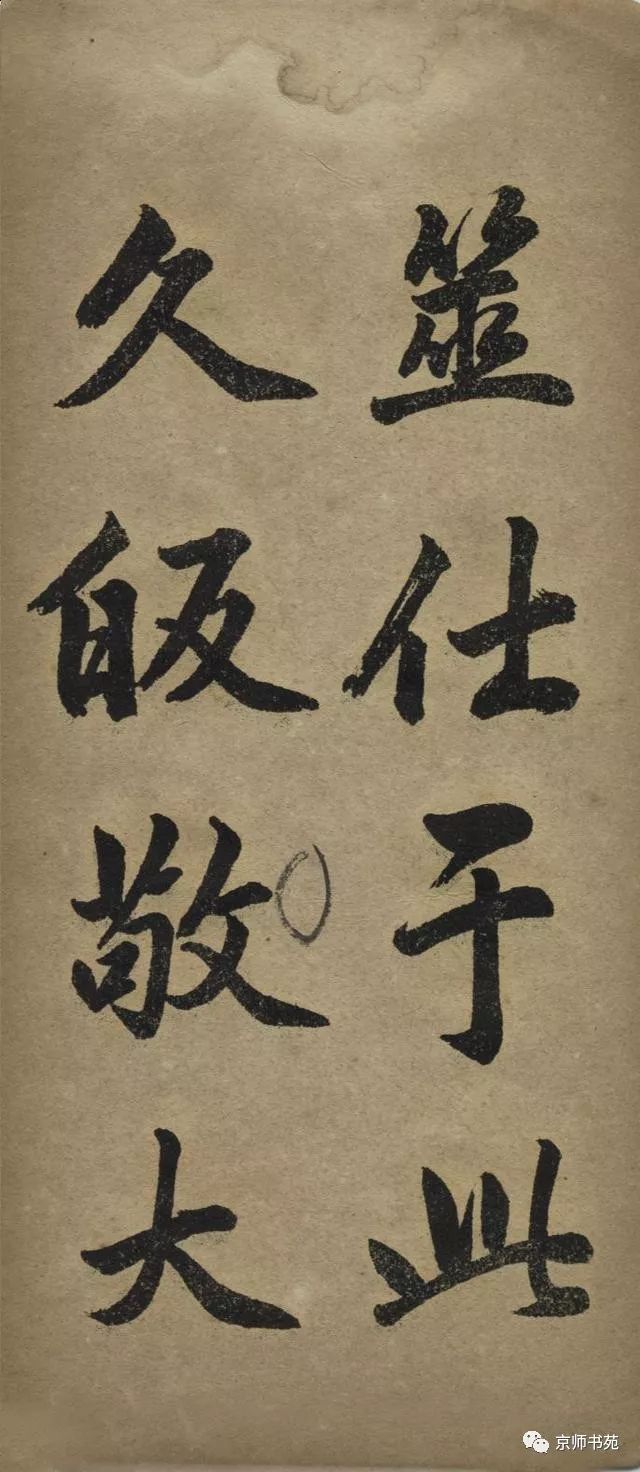 筮仕于此
久皈敬大
京师书苑